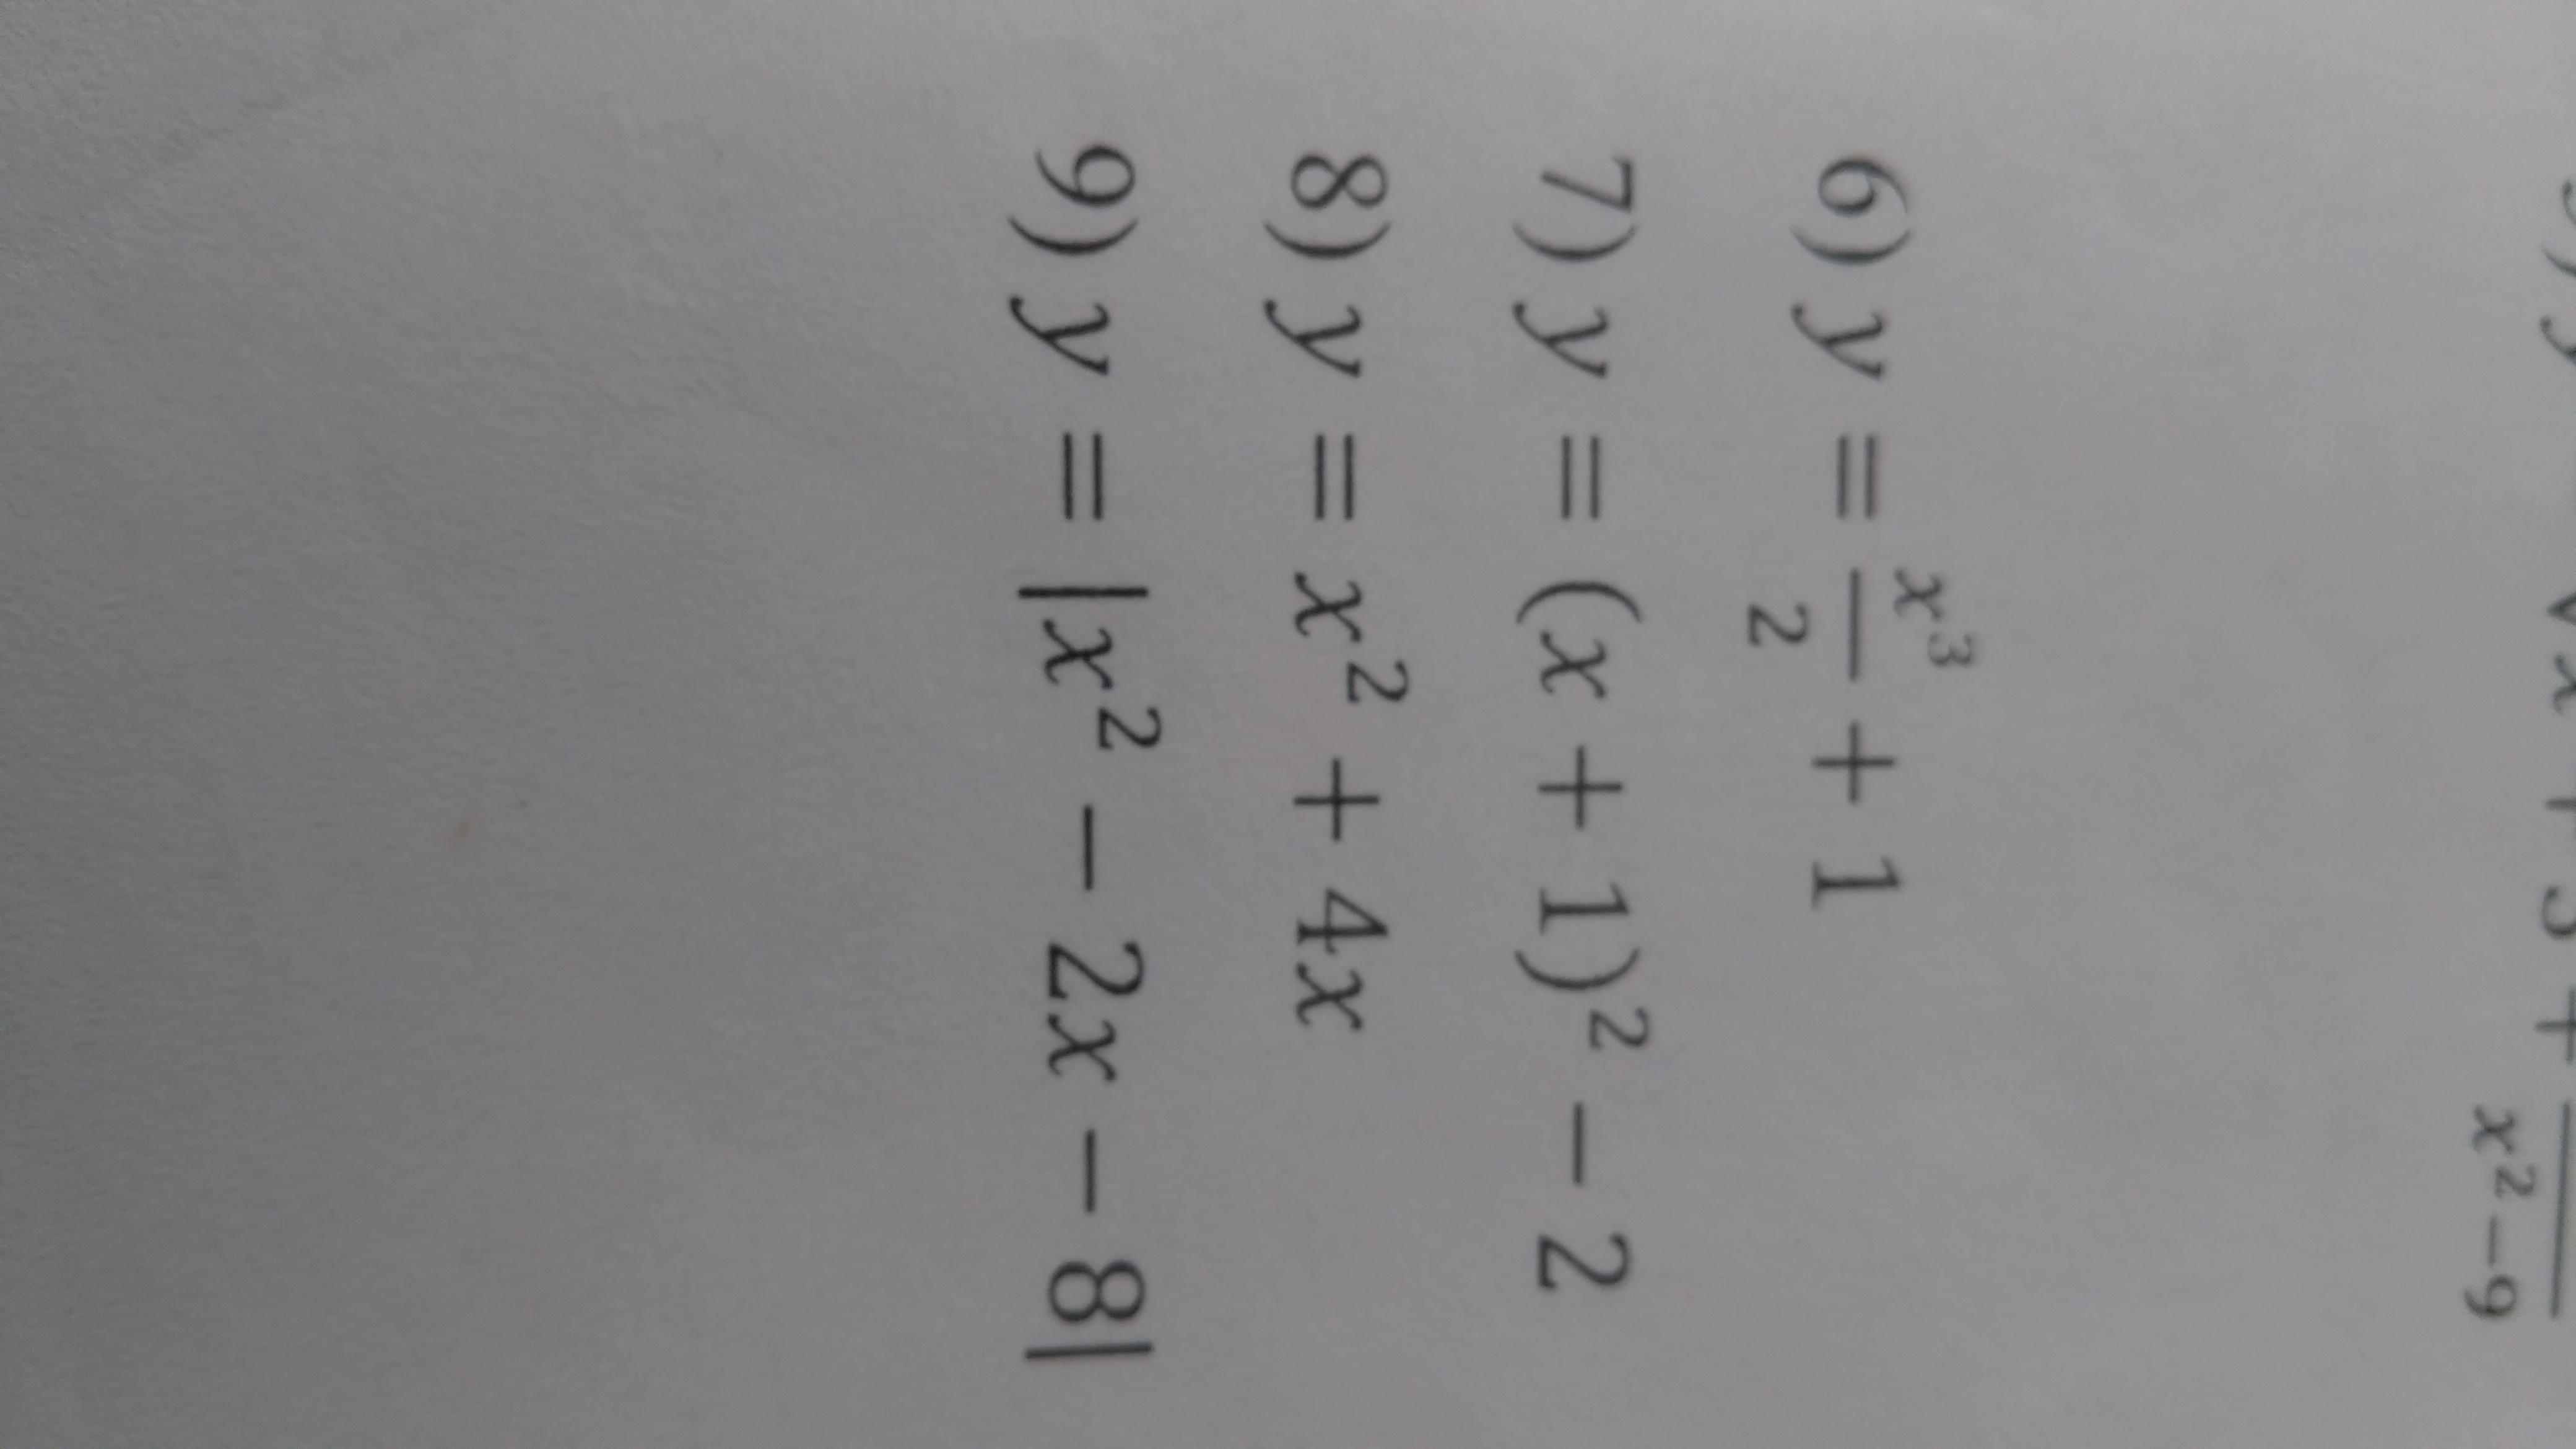 x² − 9
6) y = x³/2 + 1
7) y = (x + 1)² − 2
8) y = x² + 4x
9) y = |x² − 2x − 8|